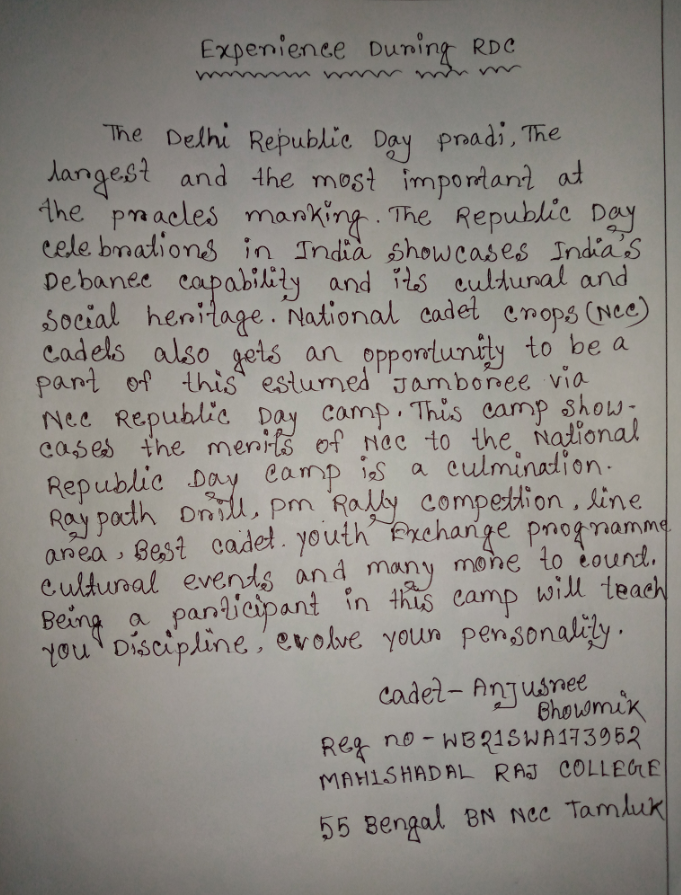 Experience During RDC
The Delhi Republic Day pradi, The
largest and the most important at
the pracles marking. The Republic Day
celebrations in India showcases India's
Debanec capability and its cultural and
social heritage. National cadet crops (NCC)
cadels also gets an opportunity to be a
part of this estumed Jamboree via
NCC Republic Day camp. This camp show-
cases the merits of NCC to the National
Republic Day camp is a culmination.
Ray path Drill, pm Rally compettion, line
area, Best cadet. youth Exchange programme
cultural events and many more to count.
Being a participant in this camp will teach
you Discipline, evolve your personality.
cadet - Anjusree
Bhowmik
Reg no - WB21SWA173952
MAHISHADAL RAJ COLLEGE
55 Bengal BN NCC Tamluk